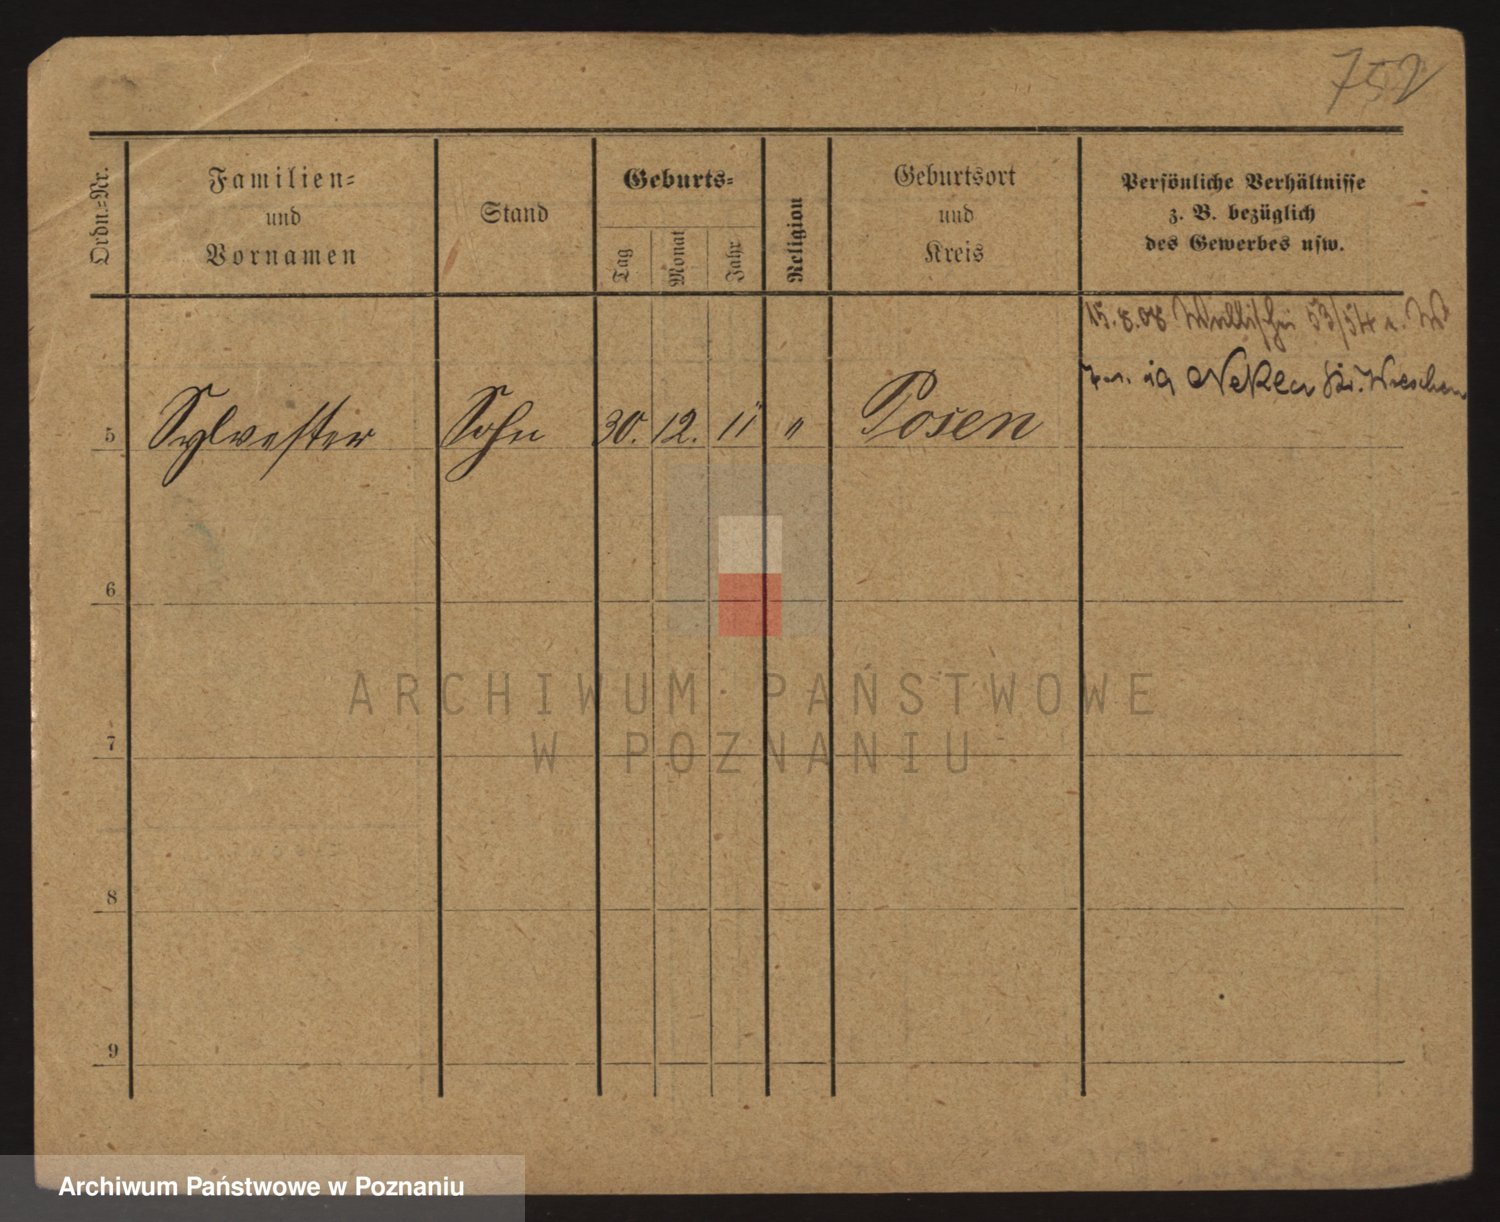 752
Ordn.=Nr.
Familien=
und
Vornamen
Stand
Geburts=
Tag
Monat
Jahr
Religion
Geburtsort
und
Kreis
Persönliche Verhältnisse
z. B. bezüglich
des Gewerbes usw.
15.8.08 53/54
5 Sylvester Sohn 30. 12. 11 " Posen
6
7
8
9
ARCHIWUM PAŃSTWOWE
W POZNANIU
Archiwum Państwowe w Poznaniu